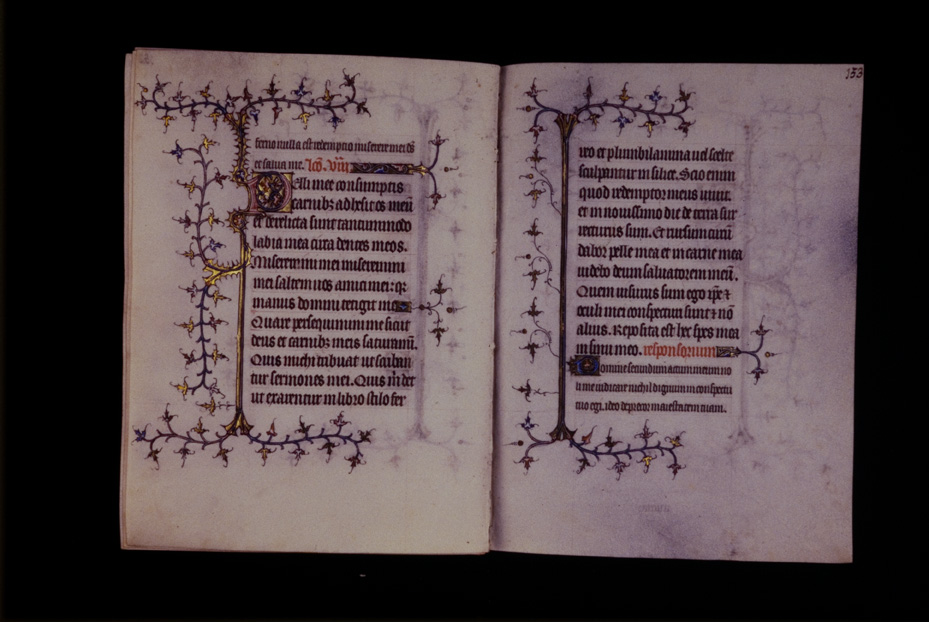 ferno nulla est redemptio miserere mei ds
et salua me. lco. viii
Pelli mee consumptis
carnibz adhesit os meū
et derelicta sunt tantummodo
labia mea circa dentes meos.
Miseremini mei miseremini
mei saltem uos amici mei: qz
manus domini tetigit me
Quare persequimini me sicut
deus et carnibz meis saturamī.
Quis michi tribuat ut scriban
tur sermones mei. Quis m det
ut exarentur in libro stilo fer
153
reo et plumbi lamina uel celte
sculpantur in silice. Scio enim
quod redemptor meus uiuit.
et in nouissimo die de terra sur
recturus sum. Et rursum circū
dabor pelle mea et in carne mea
uidebo deum saluatorem meū.
Quem uisurus sum ego ipe ⁊
oculi mei conspecturi sunt ⁊ nō
alius. reposita est hec spes mea
in sinu meo. responsorium
Domine secundum actum meum no
li me iudicare nichil dignum in conspectu
tuo egi. ideo deprecor maiestatem tuam.